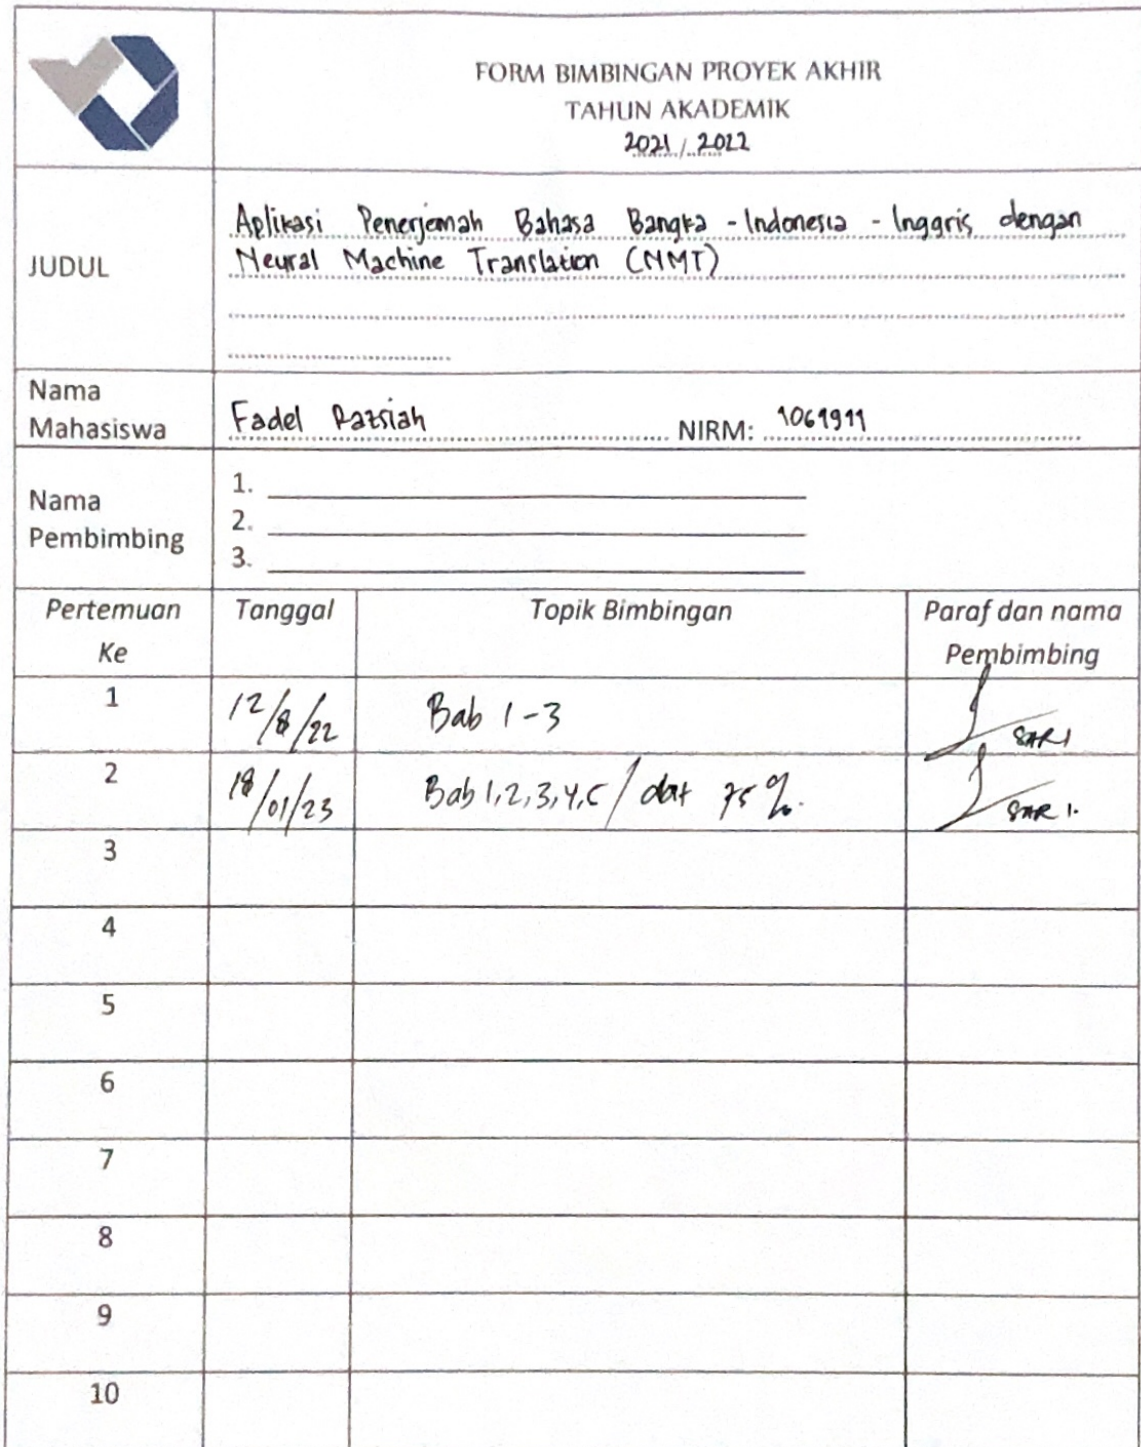 FORM BIMBINGAN PROYEK AKHIR
TAHUN AKADEMIK
2021 / 2022
JUDUL
Aplikasi Penerjemah Bahasa Bangka - Indonesia - Inggris dengan
Neural Machine Translation (NMT)
Nama
Mahasiswa
Fadel NIRM: 1061911
Nama
Pembimbing
1.
2.
3.
Pertemuan
Ke
Tanggal
Topik Bimbingan
Paraf dan nama
Pembimbing
1 12/8/22 Bab 1-3 SARI
2 18/01/23 Bab 1,2,3,4,5 / 75%. SARI.
3
4
5
6
7
8
9
10